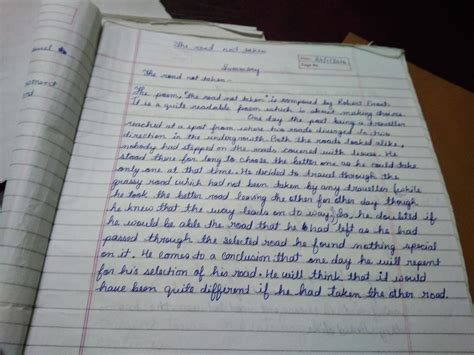 The road not taken
Summary
The road not taken -
The poem "the road not taken" is composed by Robert Frost.
It is a quite readable poem which is about making choices.
One day the poet being a traveller
reached at a spot from where two roads diverged in two
direction in the undergrowth. Both the roads looked alike,
nobody had stepped on the roads covered with leaves. He
stood there for long to choose the better one as he could take
only one at that time. He decided to travel through the
grassy road which had not been taken by any traveller (while
he took the better road leaving the other for other day though
he knew that the way leads on to way). So, he doubted if
he would be able the road that he had left as he had
passed through the selected road he found nothing special
on it. He comes to a conclusion that one day he will repent
for his selection of his road. He will think that it would
have been quite different if he had taken the other road.